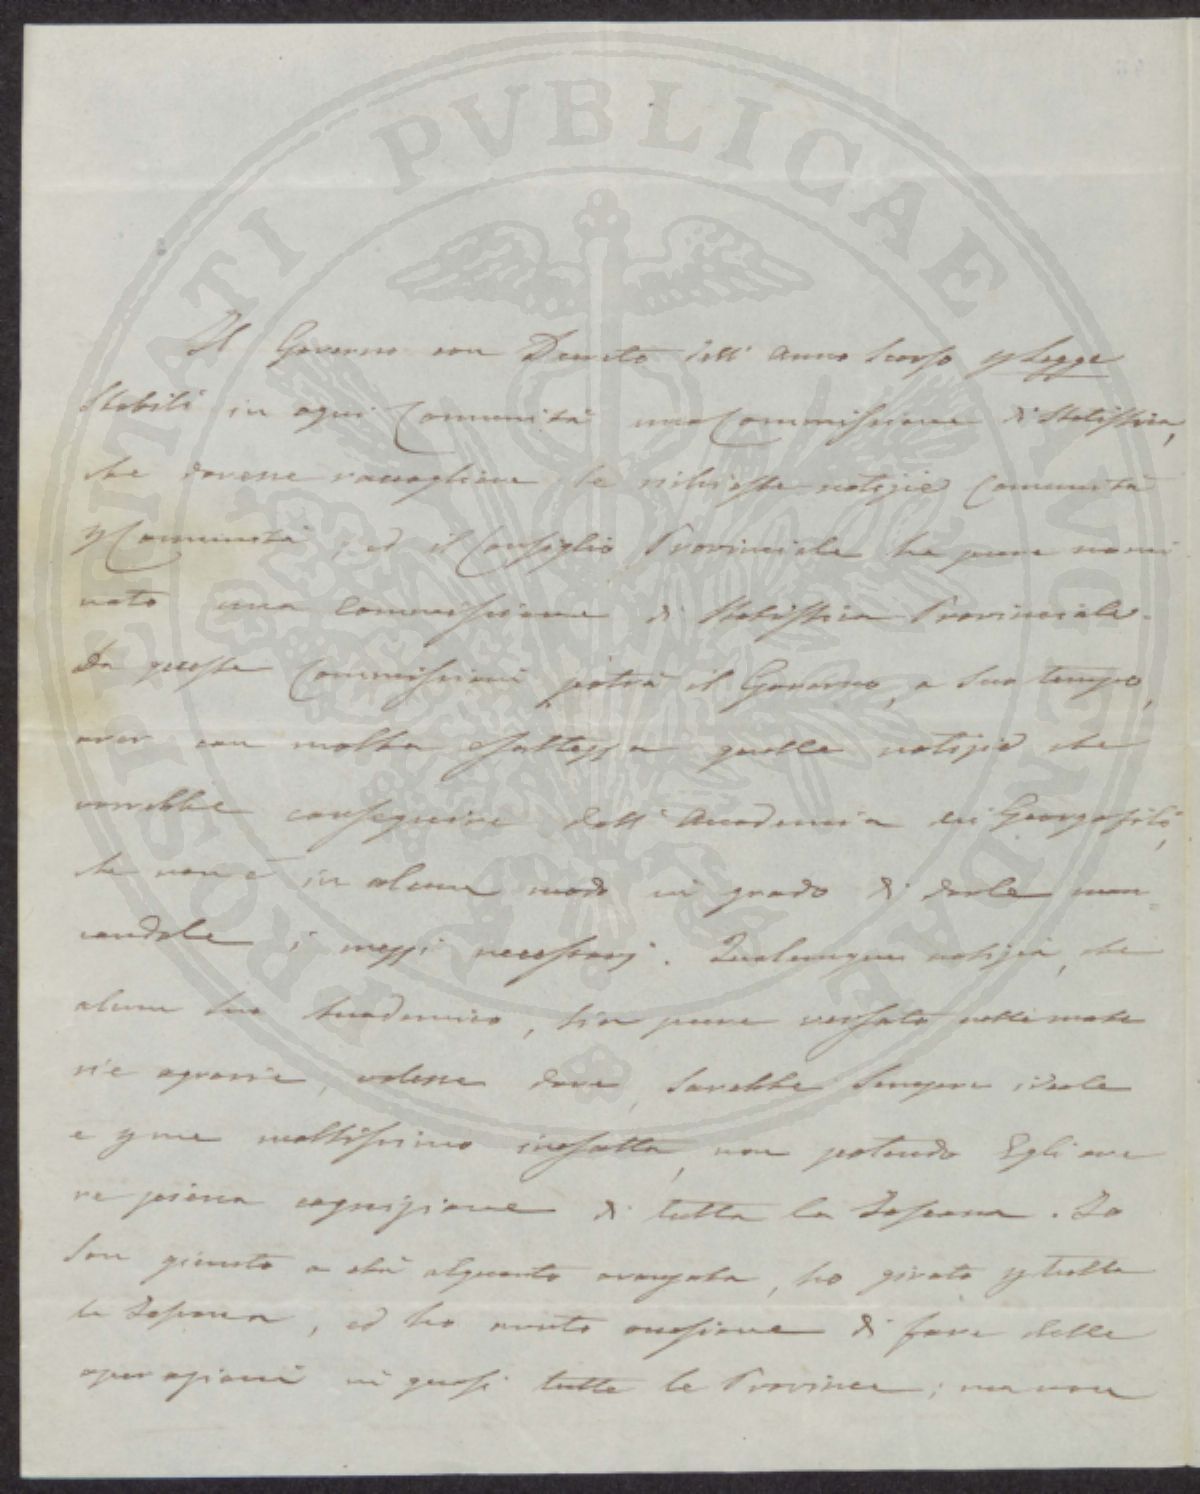 PROSPERITATI PVBLICAE AVGENDAE
Il Governo con Decreto dell' anno scorso p Legge
Stabilì in ogni Comunità una Commissione di Statistica,
che dovesse raccogliere le richieste notizie Comunità
p Comunità, ed il Consiglio Provinciale ha pure nomi
nato una Commissione di Statistica Provinciale.
Da queste Commissioni potrà il Governo, a suo tempo,
aver con molta esattezza quelle notizie che
vorrebbe conseguire dall' Accademia dei Georgofili,
che non è in alcun modo in grado di darle man=
candole i mezzi necessarj. Qualunque notizia, che
alcun suo Accademico, sia pure versato nelle mate
rie agrarie, volesse dare, sarebbe sempre ideale
e p me moltissimo inesatta, non potendo Egli ave
re piena cognizione di tutta la Toscana. Io
son giunto a età alquanto avanzata, ho girato p tutta
la Toscana, ed ho avuto occasione di fare delle
operazioni in quasi tutte le Provincie; ma non